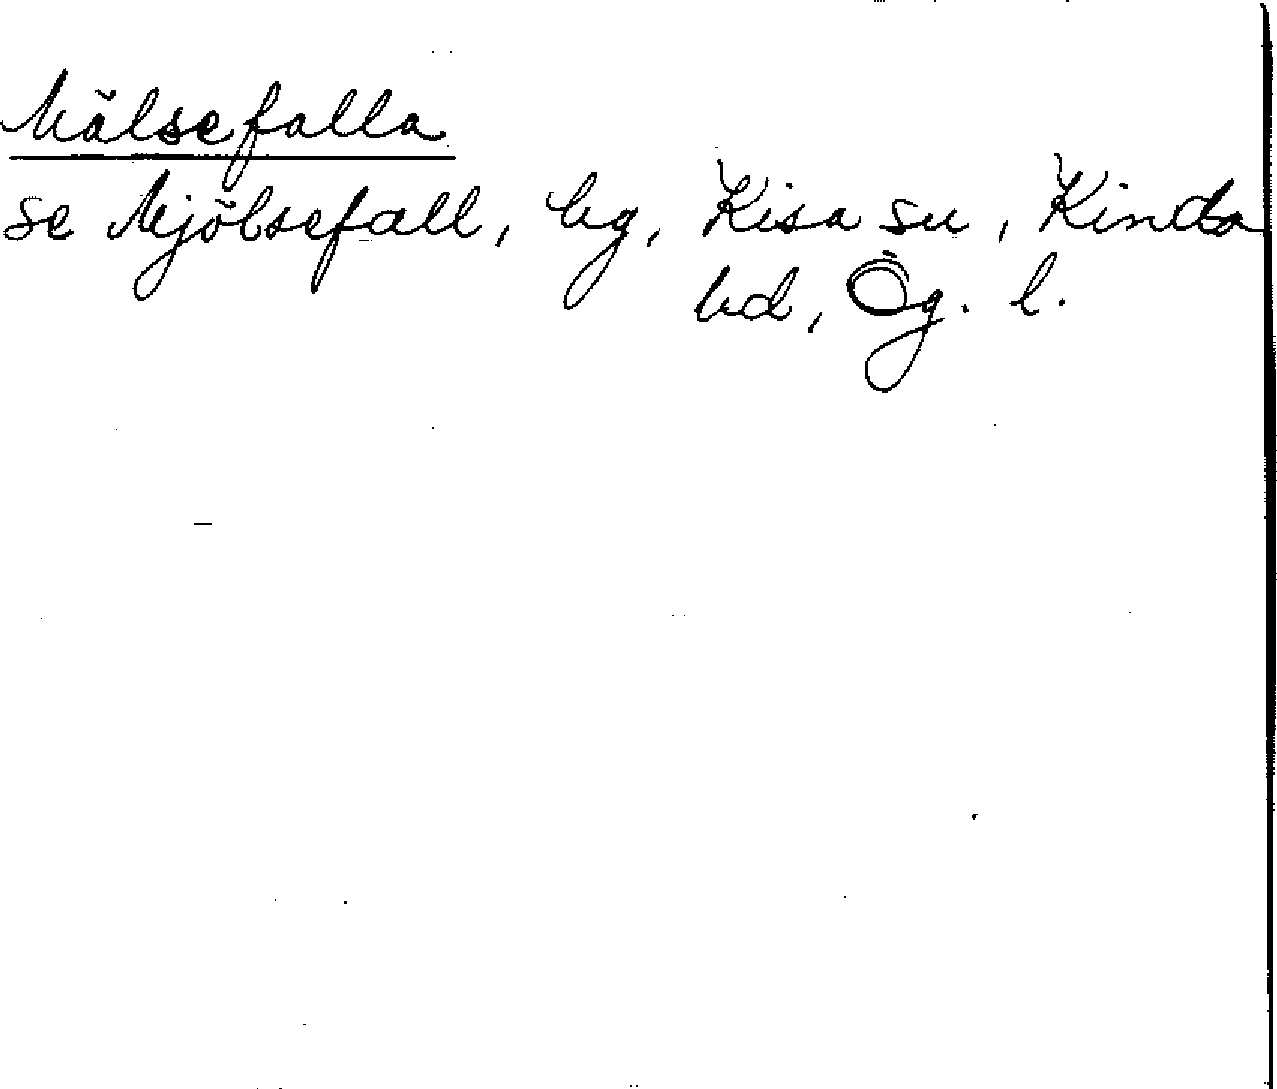 Mälsefalla
se Mjölsefall, hg, Kisa sn, Kinda
hd, Ög. l.